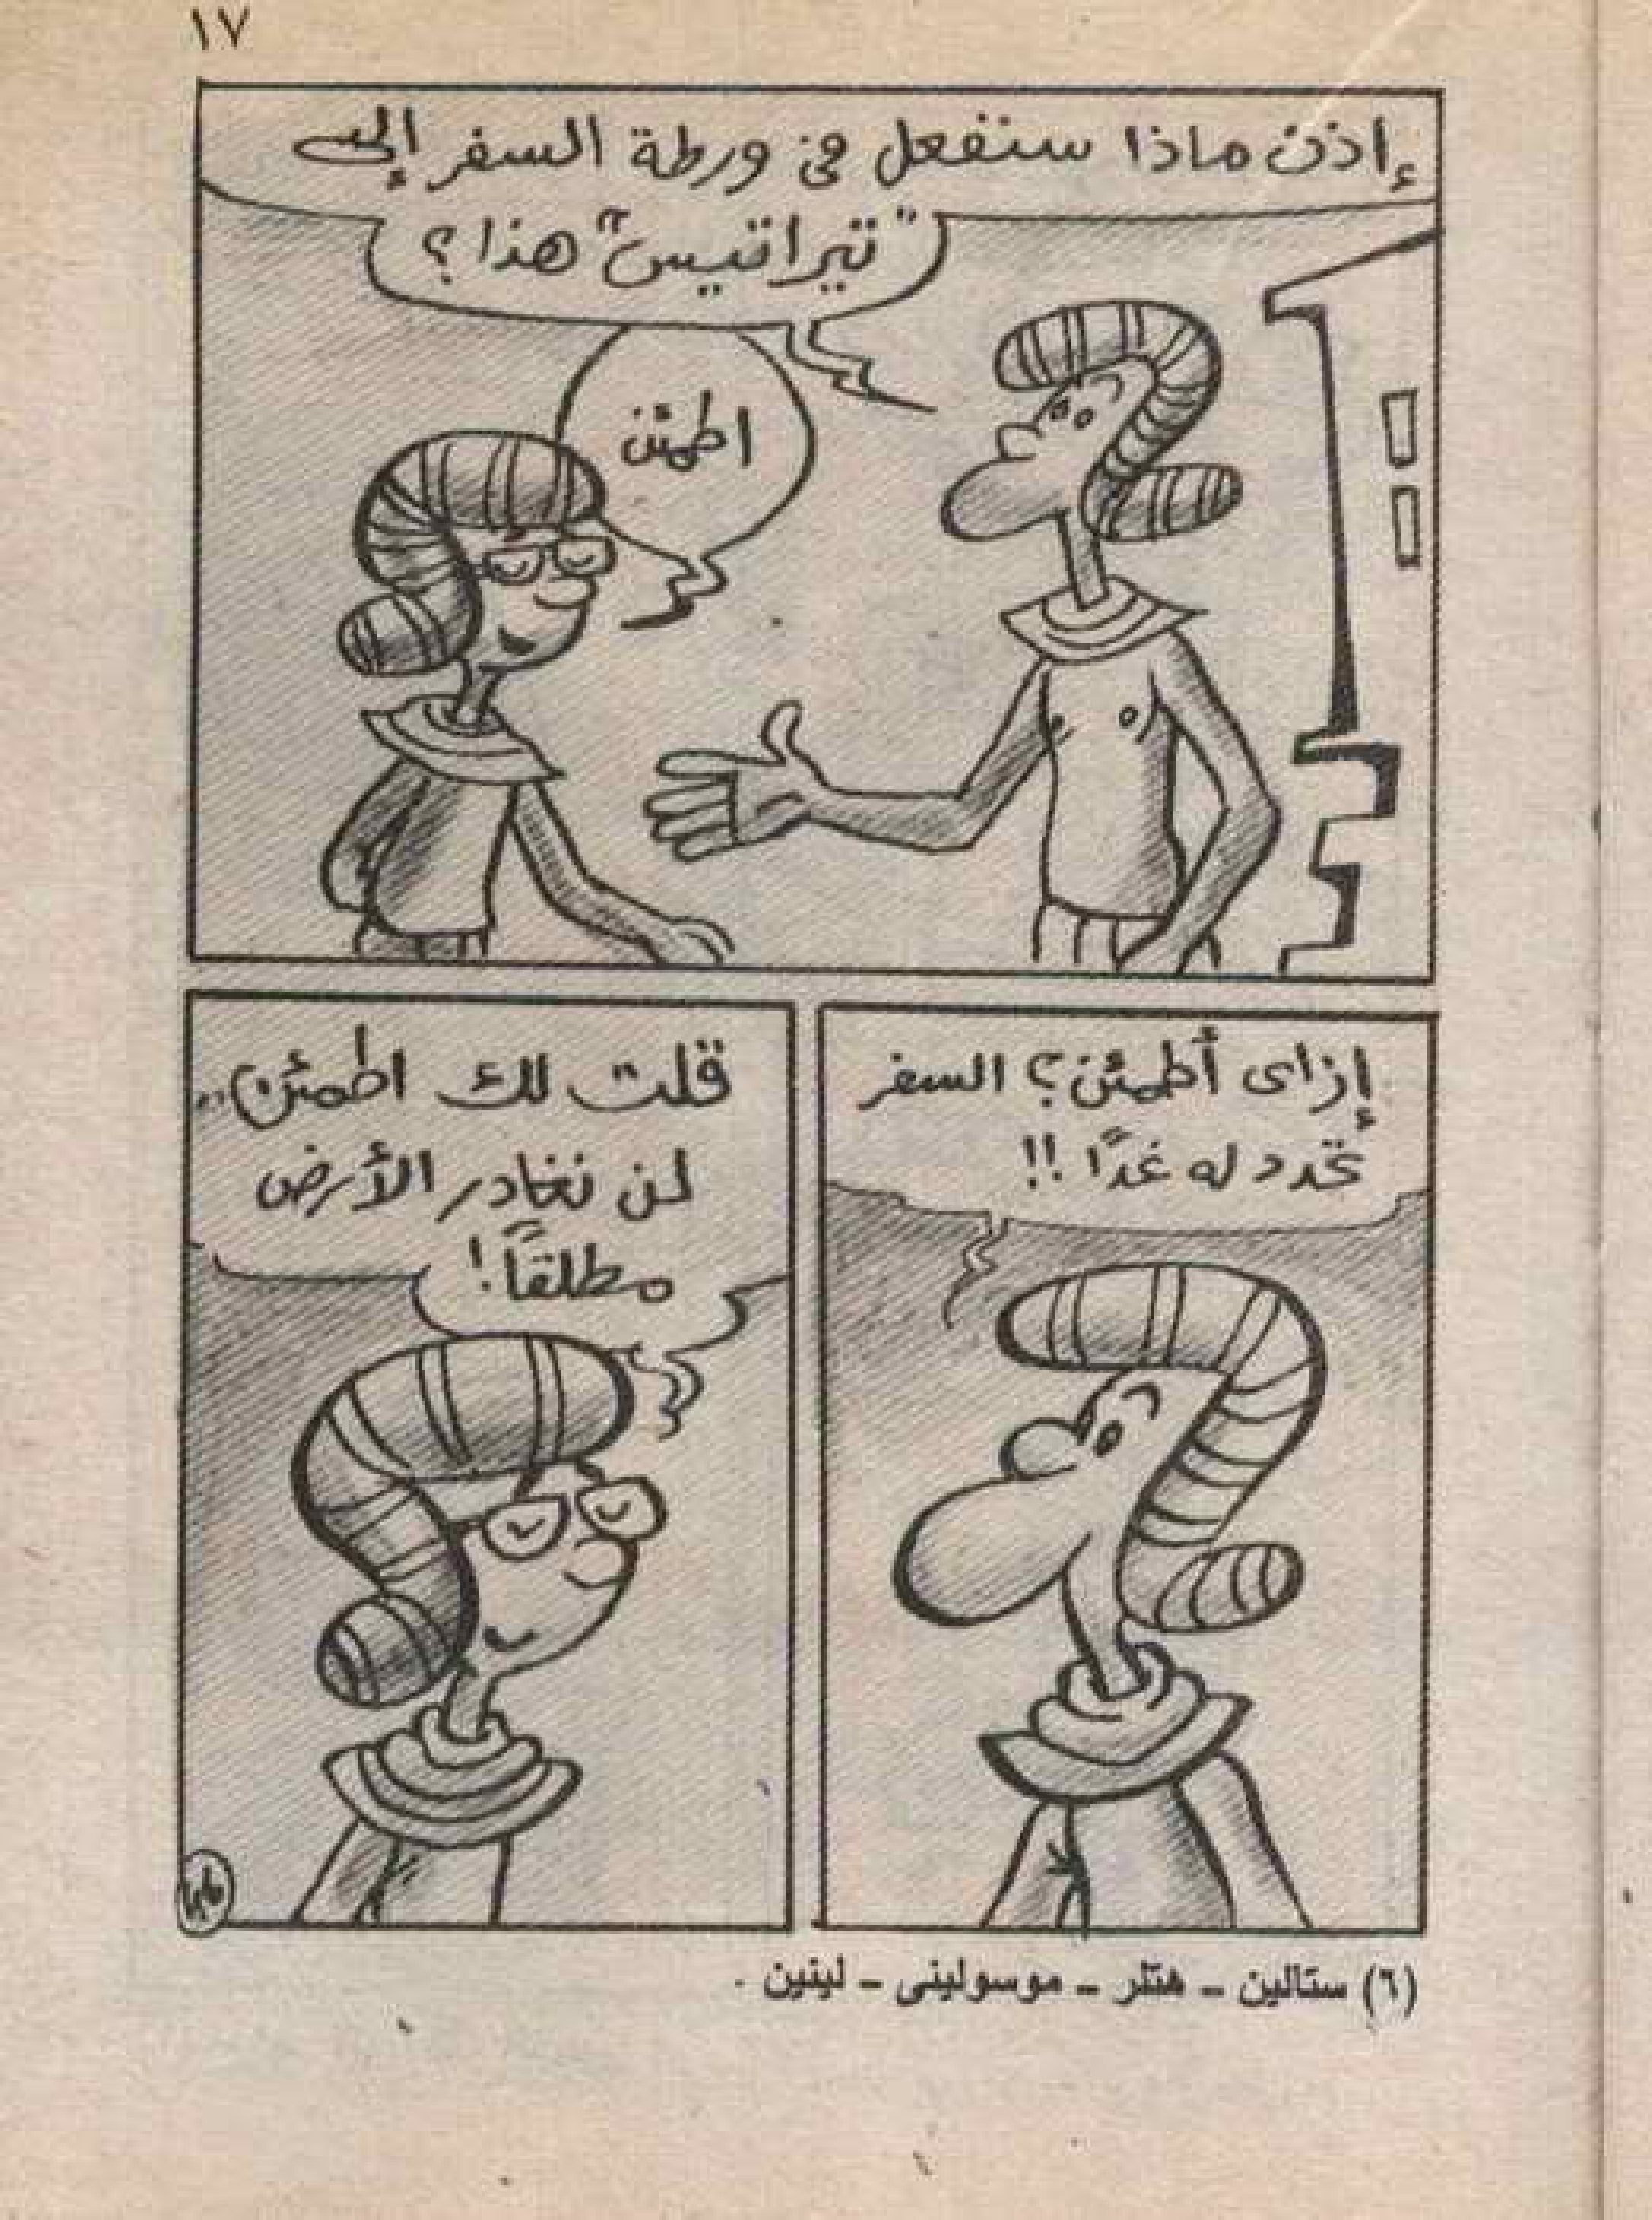 ١٧
إذن ماذا سنفعل فى ورطة السفر إلى
"تيراتيس" هذا؟
اطمئن
إزاى أطمئن؟ السفر
تحدد له غدًا!!
قلت لك اطمئن..
لن نغادر الأرض
مطلقاً!
(٦) ستالين - هتلر - موسولينى - لينين .